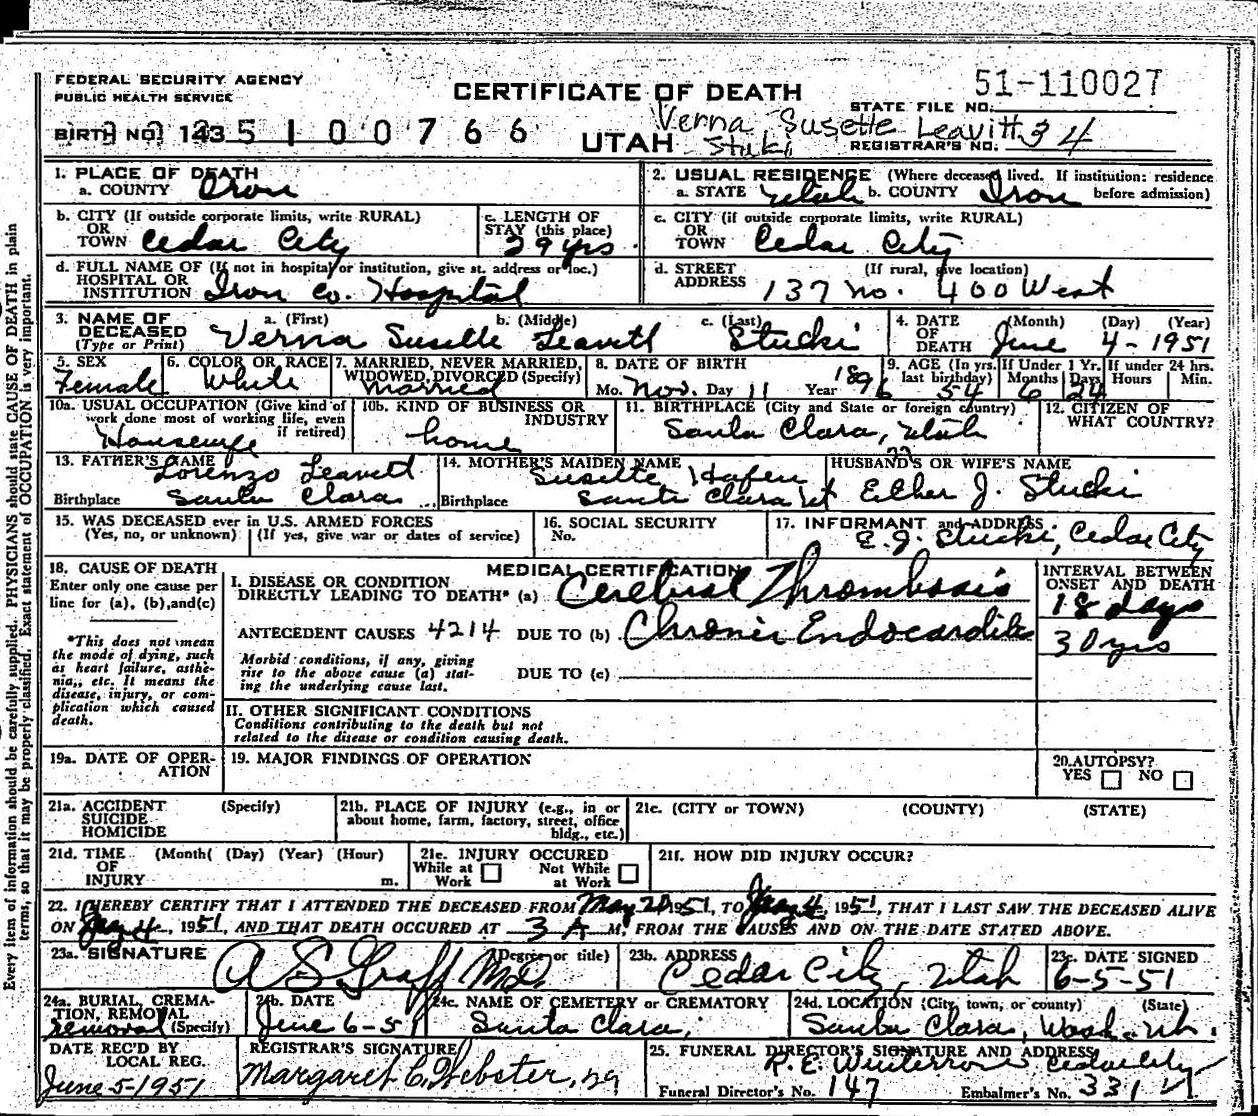 51-110027
FEDERAL SECURITY AGENCY
PUBLIC HEALTH SERVICE
CERTIFICATE OF DEATH
STATE FILE NO.
BIRTH NO. 143 5 1 0 0 7 6 6
UTAH
Verna Susette Leavitt
Stuki
REGISTRAR'S NO. 34
1. PLACE OF DEATH
a. COUNTY Iron
2. USUAL RESIDENCE (Where deceased lived. If institution: residence before admission)
a. STATE Utah b. COUNTY Iron
b. CITY (If outside corporate limits, write RURAL)
OR TOWN Cedar City
c. LENGTH OF STAY (this place)
29 yrs
c. CITY (if outside corporate limits, write RURAL)
OR TOWN Cedar City
d. FULL NAME OF (If not in hospital or institution, give st. address or loc.)
HOSPITAL OR INSTITUTION Iron Co. Hospital
d. STREET ADDRESS (If rural, give location)
137 no. 400 West
3. NAME OF DECEASED (Type or Print)
a. (First) b. (Middle) c. (Last)
Verna Susette Leavitt Stucki
4. DATE OF DEATH (Month) (Day) (Year)
June 4-1951
5. SEX
Female
6. COLOR OR RACE
White
7. MARRIED, NEVER MARRIED, WIDOWED, DIVORCED (Specify)
Married
8. DATE OF BIRTH
Mo. Nov. Day 11 Year 1896
9. AGE (In yrs. last birthday) 54
If Under 1 Yr. Months 6 Days 24
If under 24 hrs. Hours Min.
10a. USUAL OCCUPATION (Give kind of work done most of working life, even if retired)
Housewife
10b. KIND OF BUSINESS OR INDUSTRY
home
11. BIRTHPLACE (City and State or foreign country)
Santa Clara, Utah
12. CITIZEN OF WHAT COUNTRY?
13. FATHER'S NAME
Lorenzo Leavitt
Birthplace Santa Clara
14. MOTHER'S MAIDEN NAME
Susette Hafen
Birthplace Santa Clara Ut
HUSBAND'S OR WIFE'S NAME
Esther J. Stucki
15. WAS DECEASED ever in U.S. ARMED FORCES
(Yes, no, or unknown) (If yes, give war or dates of service)
16. SOCIAL SECURITY No.
17. INFORMANT and ADDRESS
E. J. Stucki, Cedar City
18. CAUSE OF DEATH
Enter only one cause per line for (a), (b), and (c)
*This does not mean the mode of dying, such as heart failure, asthenia, etc. It means the disease, injury, or complication which caused death.
MEDICAL CERTIFICATION
I. DISEASE OR CONDITION DIRECTLY LEADING TO DEATH* (a) Cerebral Thrombosis
INTERVAL BETWEEN ONSET AND DEATH
18 days
ANTECEDENT CAUSES 4214 DUE TO (b) Chronic Endocarditis
30 yrs
Morbid conditions, if any, giving rise to the above cause (a) stating the underlying cause last.
DUE TO (c)
II. OTHER SIGNIFICANT CONDITIONS
Conditions contributing to the death but not related to the disease or condition causing death.
19a. DATE OF OPERATION
19. MAJOR FINDINGS OF OPERATION
20. AUTOPSY?
YES NO
21a. ACCIDENT SUICIDE HOMICIDE (Specify)
21b. PLACE OF INJURY (e.g., in or about home, farm, factory, street, office bldg., etc.)
21c. (CITY or TOWN) (COUNTY) (STATE)
21d. TIME OF INJURY (Month( (Day) (Year) (Hour) m.
21e. INJURY OCCURED
While at Work Not While at Work
21f. HOW DID INJURY OCCUR?
22. I HEREBY CERTIFY THAT I ATTENDED THE DECEASED FROM May 1951, TO 4, 1951, THAT I LAST SAW THE DECEASED ALIVE
ON 4, 1951, AND THAT DEATH OCCURED AT 3 A M. FROM THE CAUSES AND ON THE DATE STATED ABOVE.
23a. SIGNATURE (Degree or title)
A S Graff M.D.
23b. ADDRESS
Cedar City, Utah
23c. DATE SIGNED
6-5-51
24a. BURIAL, CREMATION, REMOVAL (Specify)
removal
24b. DATE
June 6-51
24c. NAME OF CEMETERY or CREMATORY
Santa Clara,
24d. LOCATION (City, town, or county) (State)
Santa Clara, Wash. Ut.
DATE REC'D BY LOCAL REG.
June 5-1951
REGISTRAR'S SIGNATURE
Margaret C. Webster,
25. FUNERAL DIRECTOR'S SIGNATURE AND ADDRESS
R. E. Winterrose Cedar City
Funeral Director's No. 147 Embalmer's No. 331
Every item of information should be carefully supplied. PHYSICIANS should state CAUSE OF DEATH in plain
terms, so that it may be properly classified. Exact statement of OCCUPATION is very important.